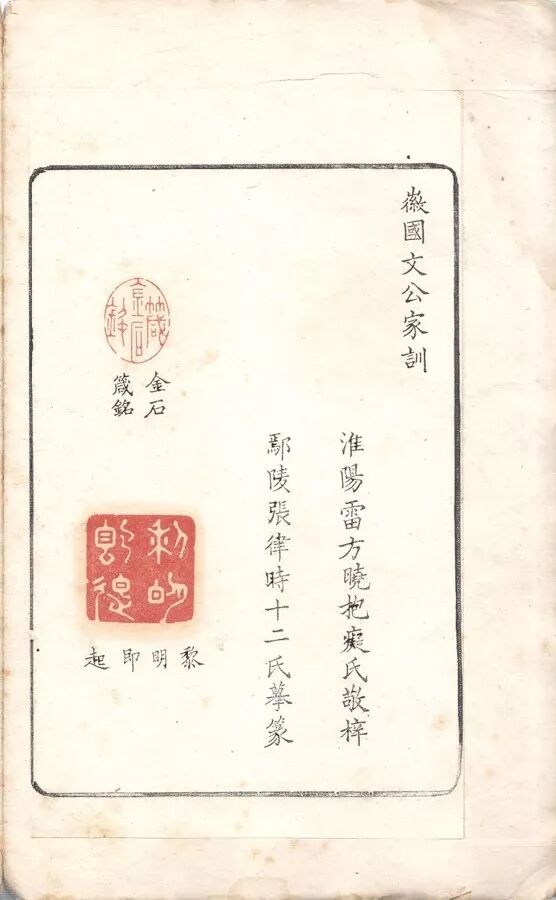 徽國文公家訓
淮陽雷方曉抱癡氏敬梓
鄢陵張律時十二氏摹篆
金石
箴銘
黎明即起